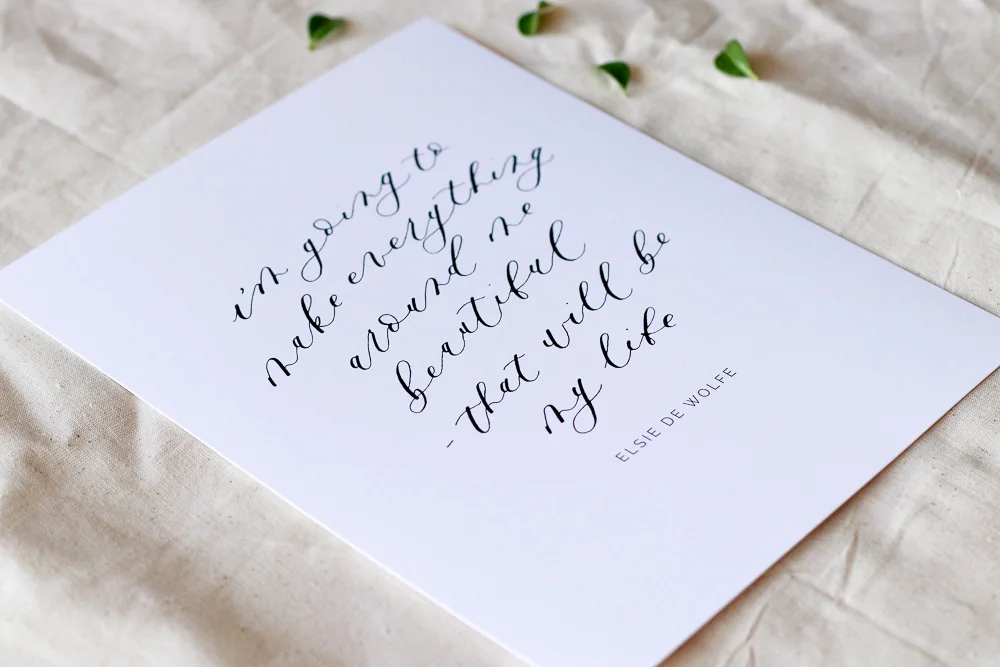 i'm going to
make everything
around me
beautiful
- that will be
my life
ELSIE DE WOLFE